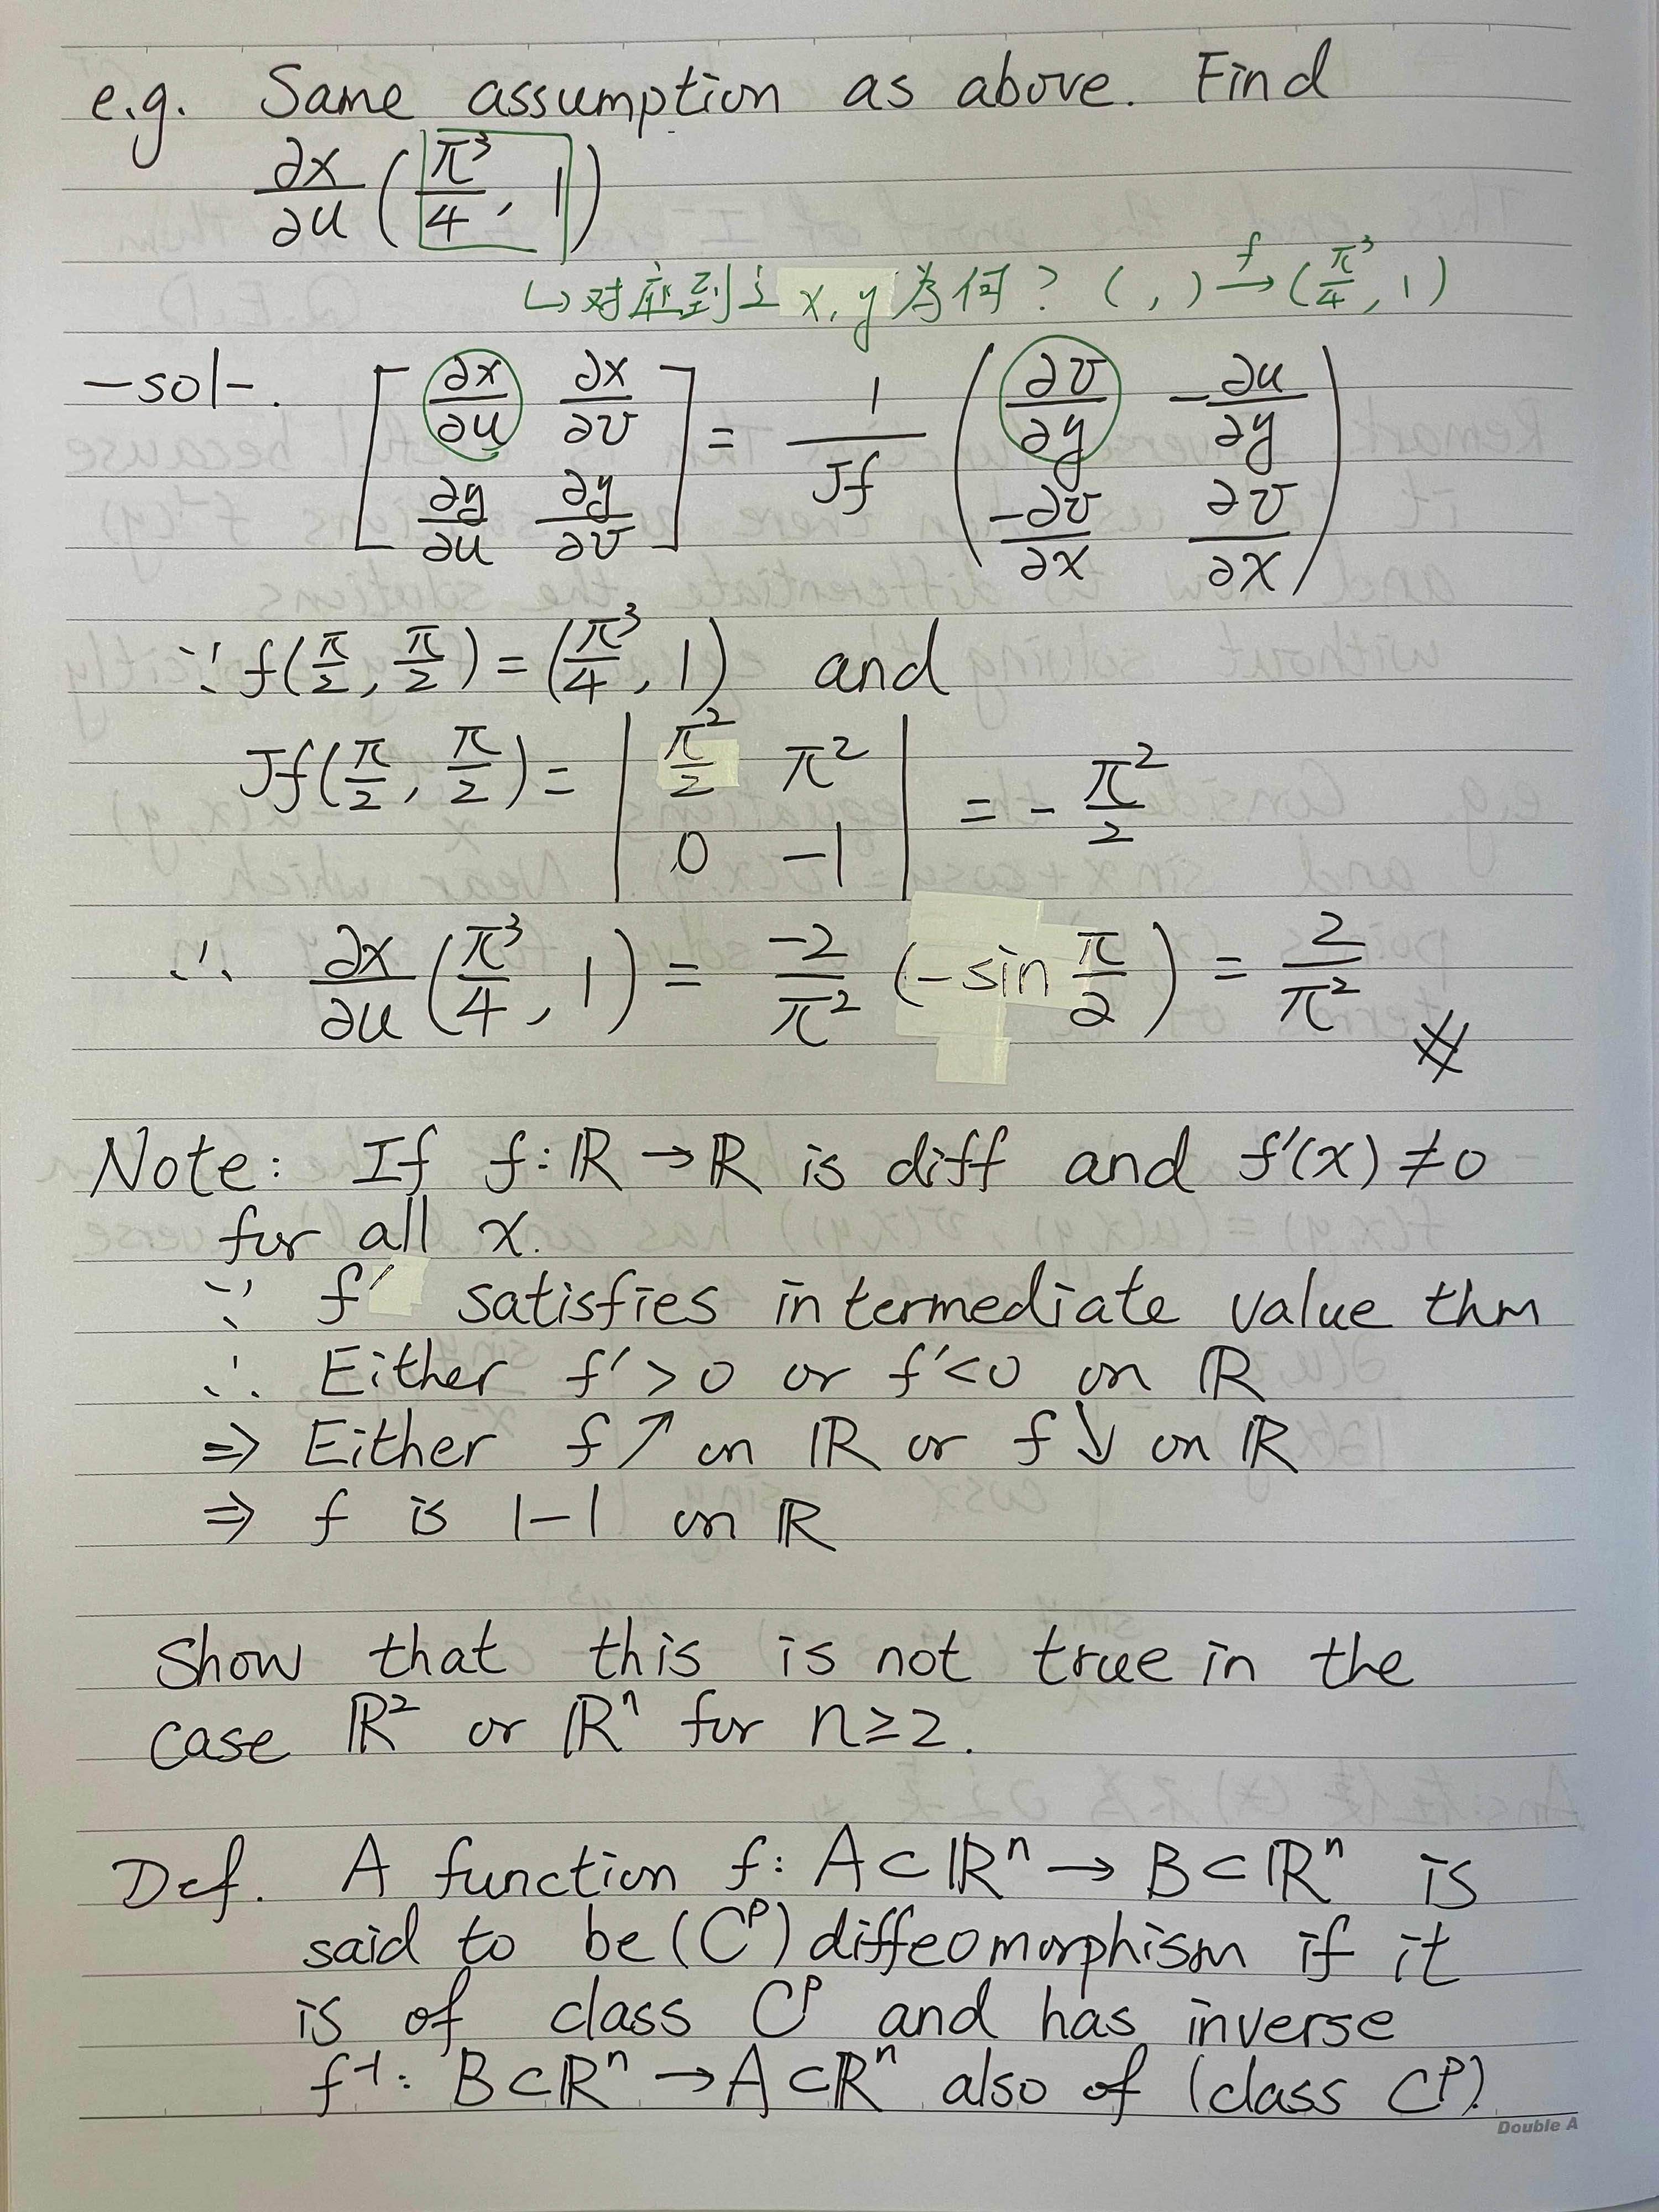 e.g. Same assumption as above. Find
∂x/∂u (π³/4, 1)
↳ 对应到之 x, y 为何? ( , ) →f (π³/4, 1)
-sol-. [∂x/∂u ∂x/∂v ; ∂y/∂u ∂y/∂v] = 1/Jf (∂v/∂y -∂u/∂y ; -∂v/∂x ∂v/∂x)
∵ f(π/2, π/2) = (π³/4, 1) and
Jf(π/2, π/2) = |π²/2 π² ; 0 -1| = -π²/2
∴ ∂x/∂u (π³/4, 1) = -2/π² (-sin π/2) = 2/π² #
Note: If f: ℝ → ℝ is diff and f'(x) ≠ 0
for all x.
∵ f' satisfies intermediate value thm
∴ Either f' > 0 or f' < 0 on ℝ
⇒ Either f ↗ on ℝ or f ↘ on ℝ
⇒ f is 1-1 on ℝ
Show that this is not true in the
case ℝ² or ℝⁿ for n ≥ 2.
Def. A function f: A ⊂ ℝⁿ → B ⊂ ℝⁿ is
said to be (Cᵖ) diffeomorphism if it
is of class Cᵖ and has inverse
f⁻¹: B ⊂ ℝⁿ → A ⊂ ℝⁿ also of (class Cᵖ).
Double A